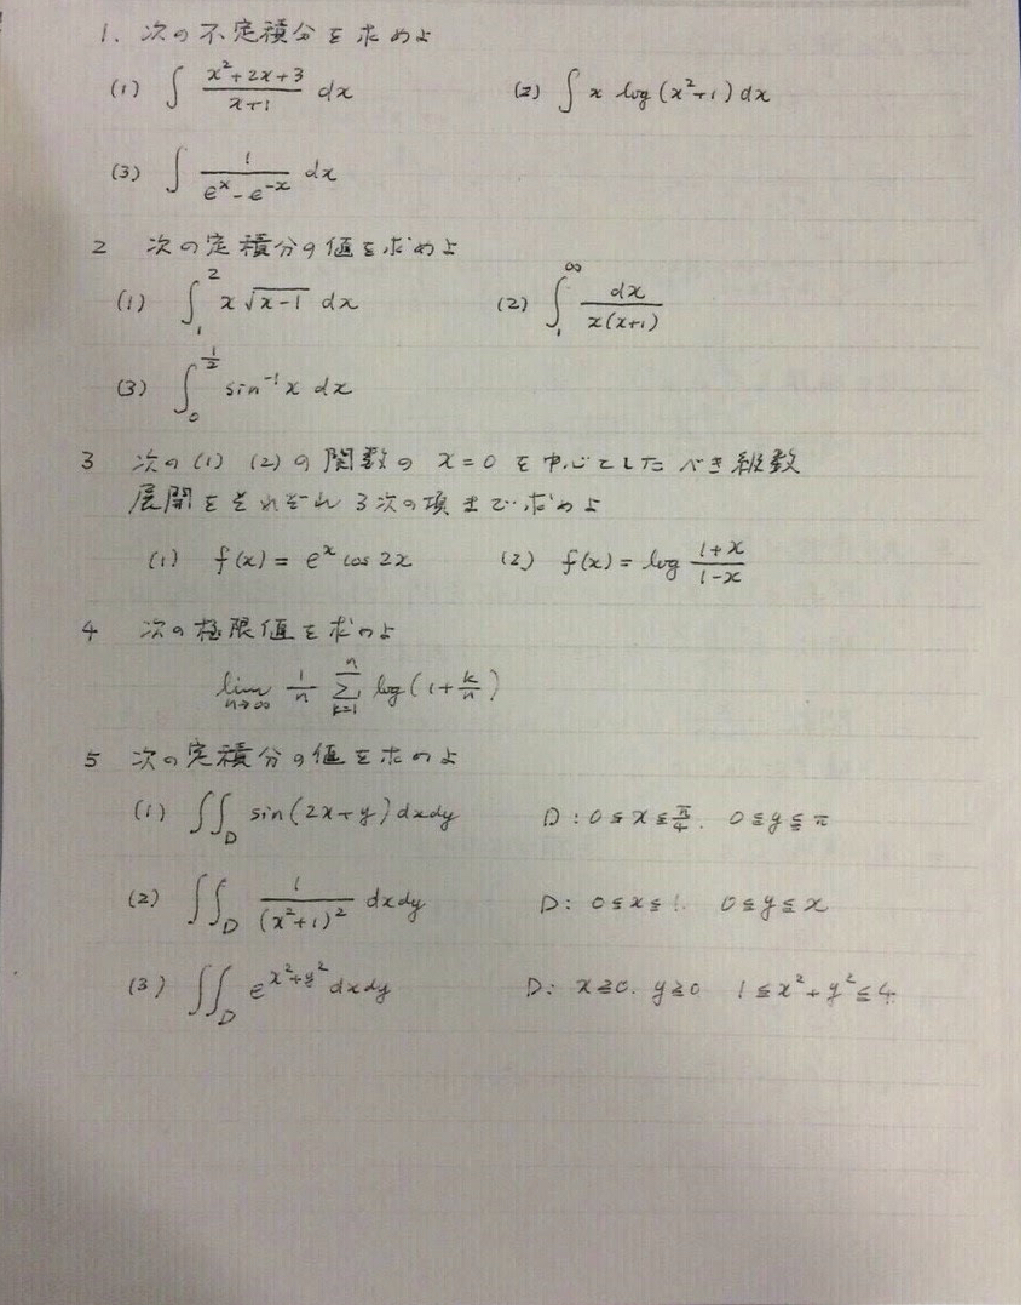 1. 次の不定積分を求めよ
(1) ∫ (x²+2x+3)/(x+1) dx (2) ∫ x log(x²+1) dx
(3) ∫ 1/(eˣ-e⁻ˣ) dx
2 次の定積分の値を求めよ
(1) ∫₁² x√(x-1) dx (2) ∫₁^∞ dx/(x(x+1))
(3) ∫₀^(1/2) sin⁻¹x dx
3 次の(1) (2)の関数の x=0 を中心としたべき級数
展開をそれぞれ3次の項まで求めよ
(1) f(x) = eˣ cos 2x (2) f(x) = log (1+x)/(1-x)
4 次の極限値を求めよ
lim_(n→∞) 1/n Σ_(k=1)^n log(1+k/n)
5 次の定積分の値を求めよ
(1) ∬_D sin(2x+y) dxdy D: 0≦x≦π/4. 0≦y≦π
(2) ∬_D 1/(x²+1)² dxdy D: 0≦x≦1. 0≦y≦x
(3) ∬_D e^(x²+y²) dxdy D: x≧0. y≧0 1≦x²+y²≦4